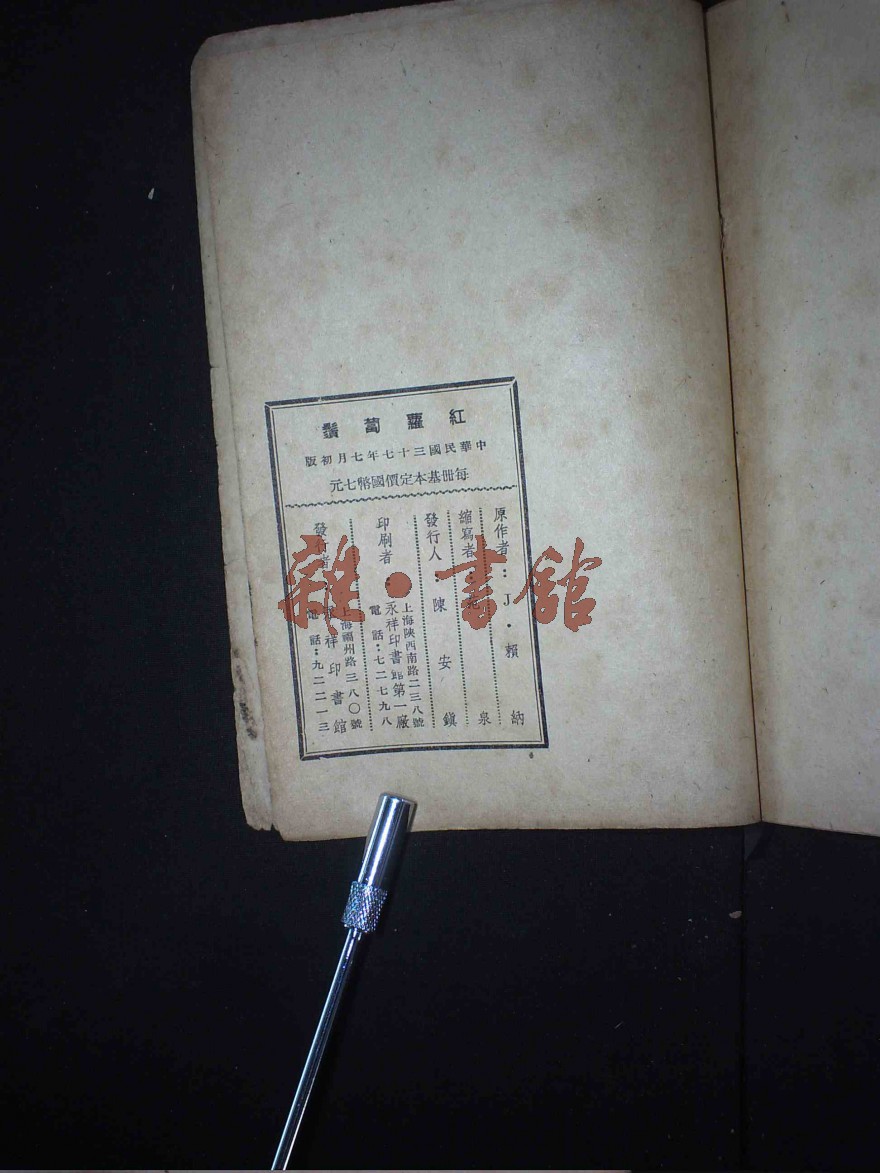 紅蘿蔔鬚
中華民國三十七年七月初版
每冊基本定價國幣七元
原作者：J·賴納
縮寫者：范泉
發行人：陳安鎭
印刷者：
上海陝西南路二三八號
永祥印書館第一廠
電話：七二七九八
發行者
上海福州路三八〇號
永祥印書館
電話：九二二一三
雜·書館